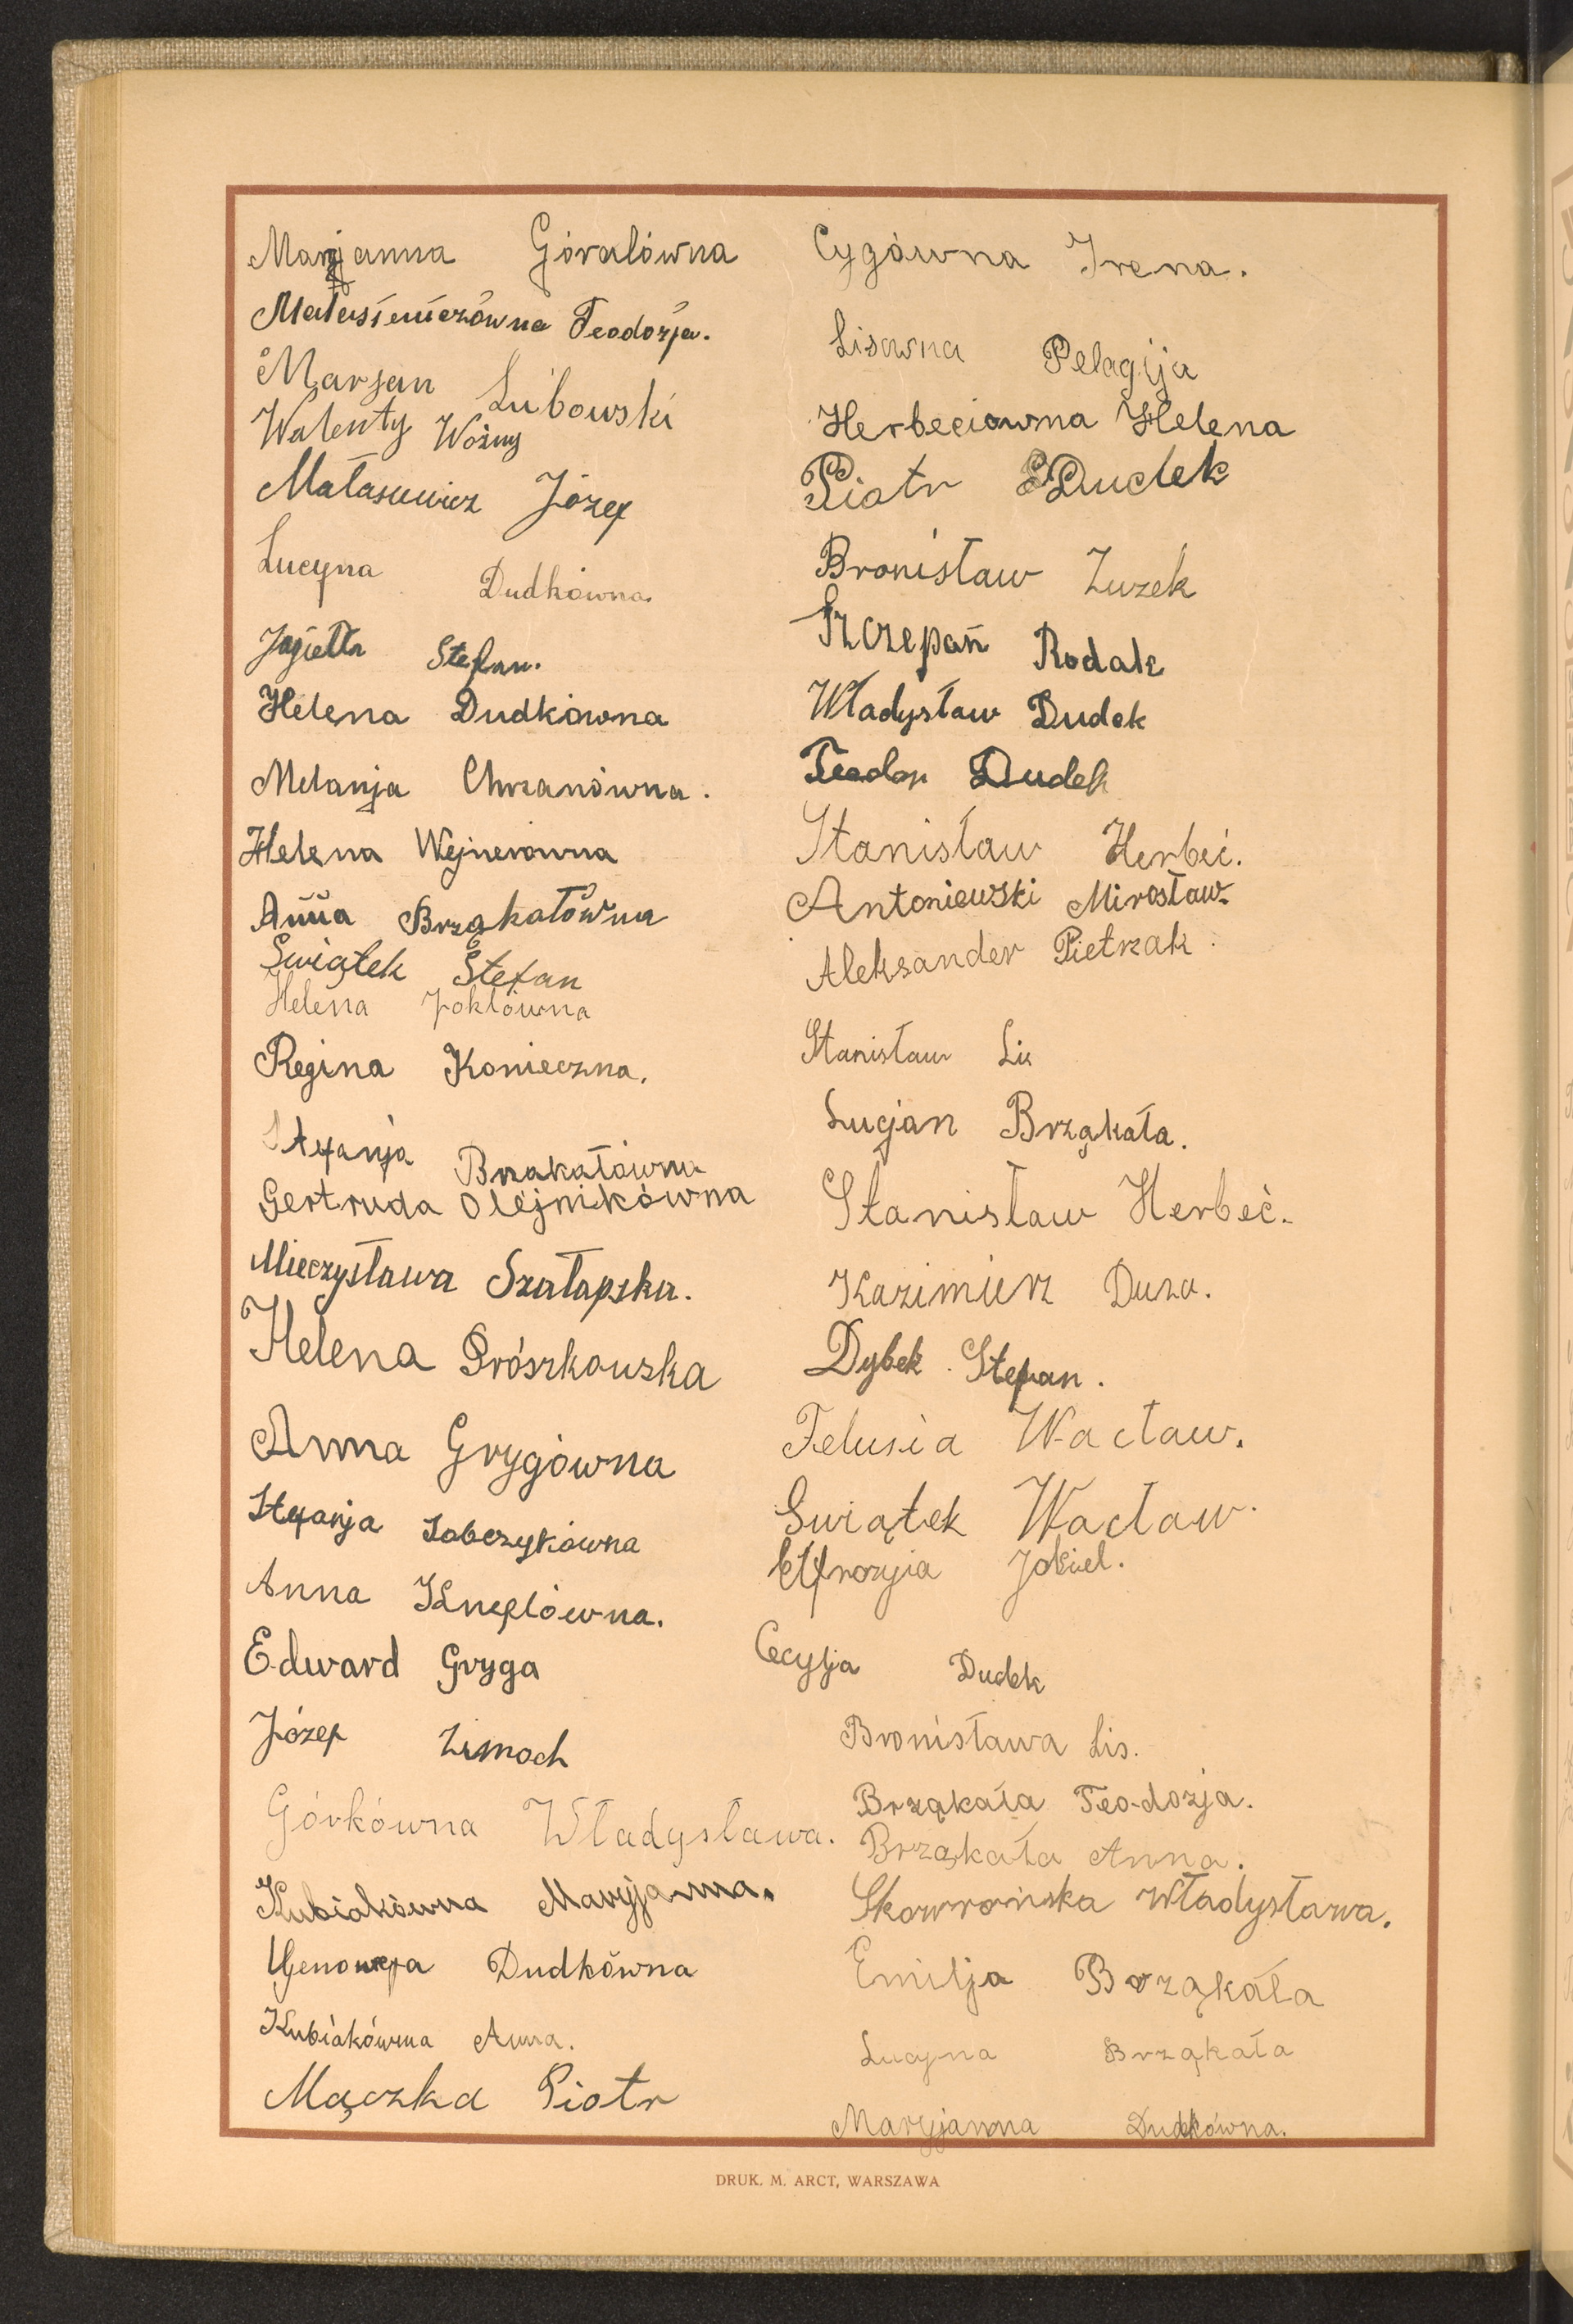 Marjanna Góralówna
Matusiewiczówna Teodozja.
Marjan Lubowski
Walenty Woźny
Matasiewicz Józef
Lucyna Dudkówna
Jagiełła Stefan.
Helena Dudkówna
Melanja Chrzanówna.
Helena Wejnerowna
Anna Brząkałówna
Świątek Stefan
Helena Joklówna
Regina Konieczna.
Stefanja Brzakałówna
Gertruda Olejnikówna
Mieczysława Szałapska.
Helena Prószkowska
Anna Grygówna
Stefanja Sobczykówna
Anna Kneflówna.
Edward Gryga
Józef Zimoch
Górkówna Władysława.
Kubiakówna Maryjanna.
Genowefa Dudkówna
Kubiakówna Anna.
Mączka Piotr
Cygówna Irena.
Lisówna Pelagija
Herbeciowna Helena
Piotr Dudek
Bronisław Zuzek
Szczepan Rodak
Władysław Dudek
Teodor Dudek
Stanisław Herbeć.
Antoniewski Mirosław
Aleksander Pietrzak.
Stanisław Lis
Lucjan Brząkała.
Stanisław Herbeć.
Kazimierz Duza.
Dybek Stefan.
Felusia Wacław.
Świątek Wacław.
Eufrozyia Jokiel.
Cecylja Dudek
Bronisława Lis.
Brząkała Teodozja.
Brząkała Anna.
Skowrońska Władysława.
Emilja Brząkała
Lucyna Brząkała
Maryjanna Dudkówna.
DRUK. M. ARCT, WARSZAWA